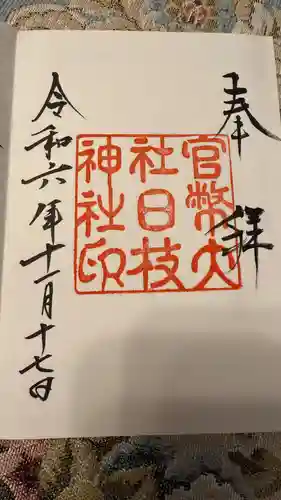 奉拝
官幣大
社日枝
神社印
令和六年十一月十七日